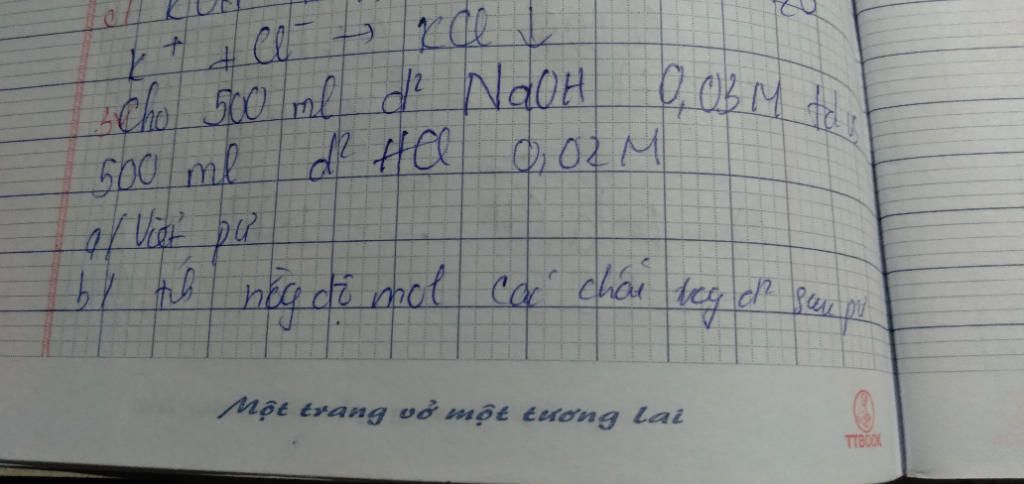 c) KOH
K⁺ + Cl⁻ → KCl ↓
3 Cho 500 ml d² NaOH 0,03M td vs
500 ml d² HCl 0,02M
a/ Viết pư
b/ nồg độ mol các chất d² sau pư
Một trang vở một tương lai
TTBOOK